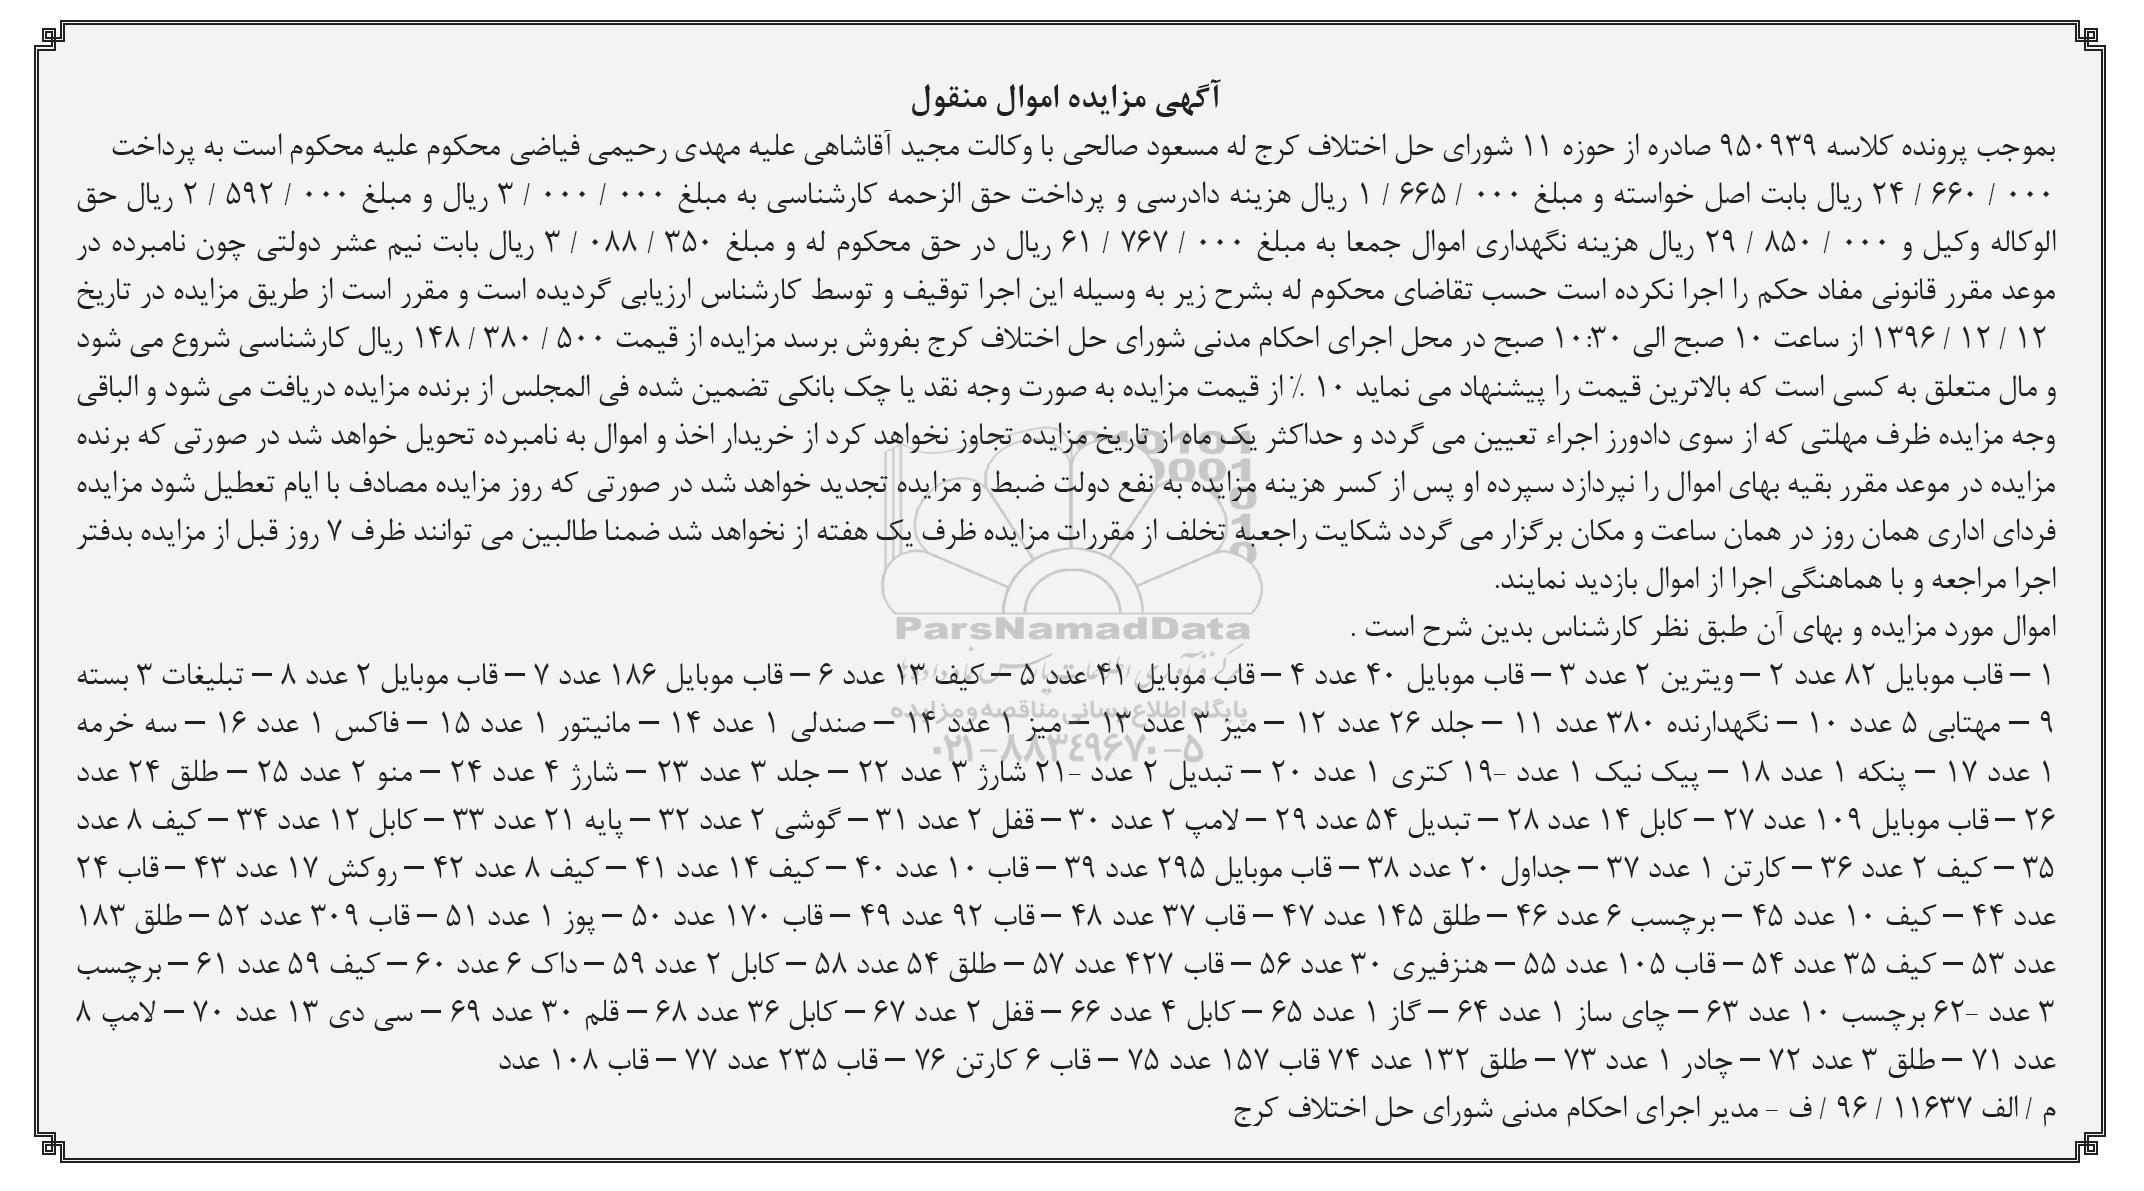 آگهی مزایده اموال منقول
بموجب پرونده کلاسه ۹۵۰۹۳۹ صادره از حوزه ۱۱ شورای حل اختلاف کرج له مسعود صالحی با وکالت مجید آقاشاهی علیه مهدی رحیمی فیاضی محکوم علیه محکوم است به پرداخت
۰۰۰ / ۶۶۰ / ۲۴ ریال بابت اصل خواسته و مبلغ ۰۰۰ / ۶۶۵ / ۱ ریال هزینه دادرسی و پرداخت حق الزحمه کارشناسی به مبلغ ۰۰۰ / ۰۰۰ / ۳ ریال و مبلغ ۰۰۰ / ۵۹۲ / ۲ ریال حق
الوکاله وکیل و ۰۰۰ / ۸۵۰ / ۲۹ ریال هزینه نگهداری اموال جمعا به مبلغ ۰۰۰ / ۷۶۷ / ۶۱ ریال در حق محکوم له و مبلغ ۳۵۰ / ۰۸۸ / ۳ ریال بابت نیم عشر دولتی چون نامبرده در
موعد مقرر قانونی مفاد حکم را اجرا نکرده است حسب تقاضای محکوم له بشرح زیر به وسیله این اجرا توقیف و توسط کارشناس ارزیابی گردیده است و مقرر است از طریق مزایده در تاریخ
۱۲ / ۱۲ / ۱۳۹۶ از ساعت ۱۰ صبح الی ۱۰:۳۰ صبح در محل اجرای احکام مدنی شورای حل اختلاف کرج بفروش برسد مزایده از قیمت ۵۰۰ / ۳۸۰ / ۱۴۸ ریال کارشناسی شروع می شود
و مال متعلق به کسی است که بالاترین قیمت را پیشنهاد می نماید ۱۰ ٪ از قیمت مزایده به صورت وجه نقد یا چک بانکی تضمین شده فی المجلس از برنده مزایده دریافت می شود و الباقی
وجه مزایده ظرف مهلتی که از سوی دادورز اجراء تعیین می گردد و حداکثر یک ماه از تاریخ مزایده تجاوز نخواهد کرد از خریدار اخذ و اموال به نامبرده تحویل خواهد شد در صورتی که برنده
مزایده در موعد مقرر بقیه بهای اموال را نپردازد سپرده او پس از کسر هزینه مزایده به نفع دولت ضبط و مزایده تجدید خواهد شد در صورتی که روز مزایده مصادف با ایام تعطیل شود مزایده
فردای اداری همان روز در همان ساعت و مکان برگزار می گردد شکایت راجعبه تخلف از مقررات مزایده ظرف یک هفته از نخواهد شد ضمنا طالبین می توانند ظرف ۷ روز قبل از مزایده بدفتر
اجرا مراجعه و با هماهنگی اجرا از اموال بازدید نمایند.
اموال مورد مزایده و بهای آن طبق نظر کارشناس بدین شرح است .
۱ – قاب موبایل ۸۲ عدد ۲ – ویترین ۲ عدد ۳ – قاب موبایل ۴۰ عدد ۴ – قاب موبایل ۴۱ عدد ۵ – کیف ۱۳ عدد ۶ – قاب موبایل ۱۸۶ عدد ۷ – قاب موبایل ۲ عدد ۸ – تبلیغات ۳ بسته
۹ – مهتابی ۵ عدد ۱۰ – نگهدارنده ۳۸۰ عدد ۱۱ – جلد ۲۶ عدد ۱۲ – میز ۳ عدد ۱۳ – میز ۱ عدد ۱۴ – صندلی ۱ عدد ۱۴ – مانیتور ۱ عدد ۱۵ – فاکس ۱ عدد ۱۶ – سه خرمه
۱ عدد ۱۷ – پنکه ۱ عدد ۱۸ – پیک نیک ۱ عدد -۱۹ کتری ۱ عدد ۲۰ – تبدیل ۲ عدد -۲۱ شارژ ۳ عدد ۲۲ – جلد ۳ عدد ۲۳ – شارژ ۴ عدد ۲۴ – منو ۲ عدد ۲۵ – طلق ۲۴ عدد
۲۶ – قاب موبایل ۱۰۹ عدد ۲۷ – کابل ۱۴ عدد ۲۸ – تبدیل ۵۴ عدد ۲۹ – لامپ ۲ عدد ۳۰ – قفل ۲ عدد ۳۱ – گوشی ۲ عدد ۳۲ – پایه ۲۱ عدد ۳۳ – کابل ۱۲ عدد ۳۴ – کیف ۸ عدد
۳۵ – کیف ۲ عدد ۳۶ – کارتن ۱ عدد ۳۷ – جداول ۲۰ عدد ۳۸ – قاب موبایل ۲۹۵ عدد ۳۹ – قاب ۱۰ عدد ۴۰ – کیف ۱۴ عدد ۴۱ – کیف ۸ عدد ۴۲ – روکش ۱۷ عدد ۴۳ – قاب ۲۴
عدد ۴۴ – کیف ۱۰ عدد ۴۵ – برچسب ۶ عدد ۴۶ – طلق ۱۴۵ عدد ۴۷ – قاب ۳۷ عدد ۴۸ – قاب ۹۲ عدد ۴۹ – قاب ۱۷۰ عدد ۵۰ – پوز ۱ عدد ۵۱ – قاب ۳۰۹ عدد ۵۲ – طلق ۱۸۳
عدد ۵۳ – کیف ۳۵ عدد ۵۴ – قاب ۱۰۵ عدد ۵۵ – هنزفیری ۳۰ عدد ۵۶ – قاب ۴۲۷ عدد ۵۷ – طلق ۵۴ عدد ۵۸ – کابل ۲ عدد ۵۹ – داک ۶ عدد ۶۰ – کیف ۵۹ عدد ۶۱ – برچسب
۳ عدد -۶۲ برچسب ۱۰ عدد ۶۳ – چای ساز ۱ عدد ۶۴ – گاز ۱ عدد ۶۵ – کابل ۴ عدد ۶۶ – قفل ۲ عدد ۶۷ – کابل ۳۶ عدد ۶۸ – قلم ۳۰ عدد ۶۹ – سی دی ۱۳ عدد ۷۰ – لامپ ۸
عدد ۷۱ – طلق ۳ عدد ۷۲ – چادر ۱ عدد ۷۳ – طلق ۱۳۲ عدد ۷۴ قاب ۱۵۷ عدد ۷۵ – قاب ۶ کارتن ۷۶ – قاب ۲۳۵ عدد ۷۷ – قاب ۱۰۸ عدد
م / الف ۱۱۶۳۷ / ۹۶ / ف - مدیر اجرای احکام مدنی شورای حل اختلاف کرج
ParsNamadData
پایگاه اطلاع رسانی مناقصه و مزایده
۰۲۱-۸۸۳۴۹۶۷۰-۵